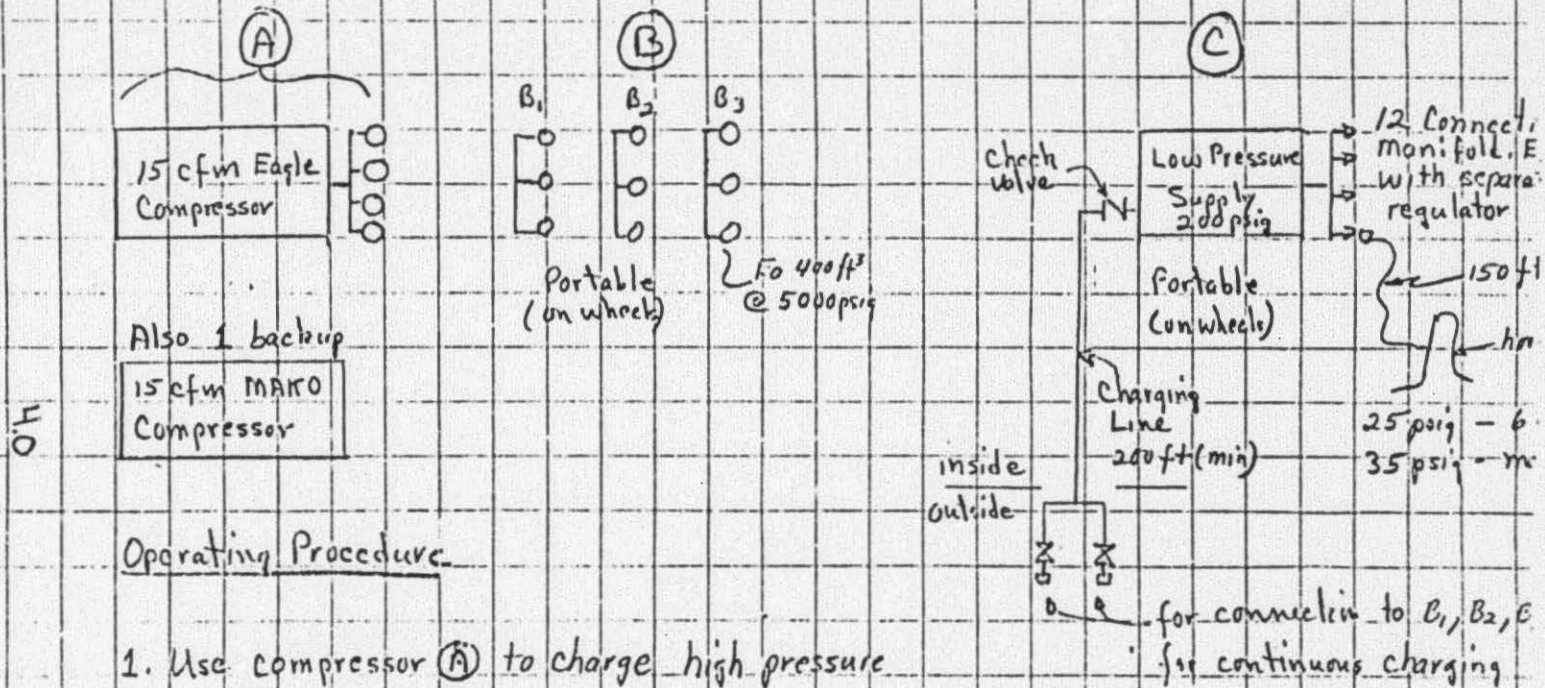 A
15 cfm Eagle
Compressor
Also 1 backup
15 cfm MAKO
Compressor
B
B1 B2 B3
Portable
(on wheels)
400 ft³
@ 5000 psig
C
Check
valve
Low Pressure
Supply
200 psig
Portable
(on wheels)
12 Connect.
manifold. E
with separa
regulator
150 ft
25 psig - 6
35 psig - m
Charging
Line
200 ft (min)
inside
outside
for connectin to B1, B2,
for continuous charging
Operating Procedure
1. Use compressor A to charge high pressure